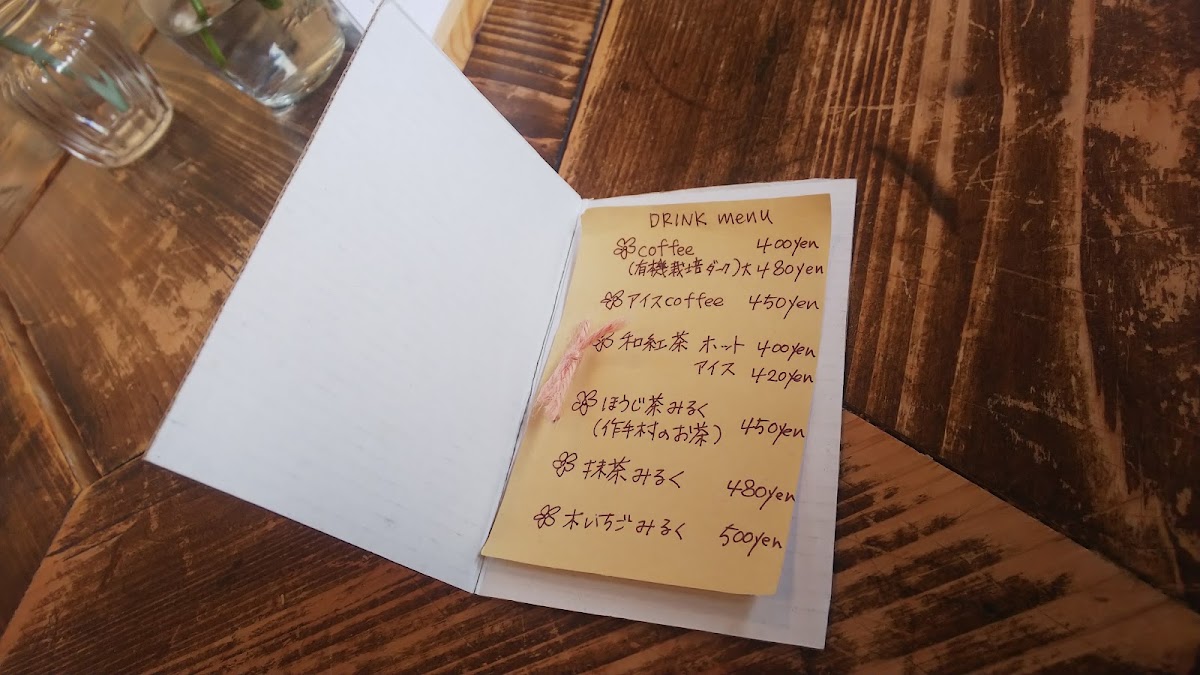 DRINK menu
coffee 400yen
(有機栽培ダーク)大 480yen
アイスcoffee 450yen
和紅茶 ホット 400yen
アイス 420yen
ほうじ茶みるく
(作手村のお茶) 450yen
抹茶みるく 480yen
木いちごみるく 500yen